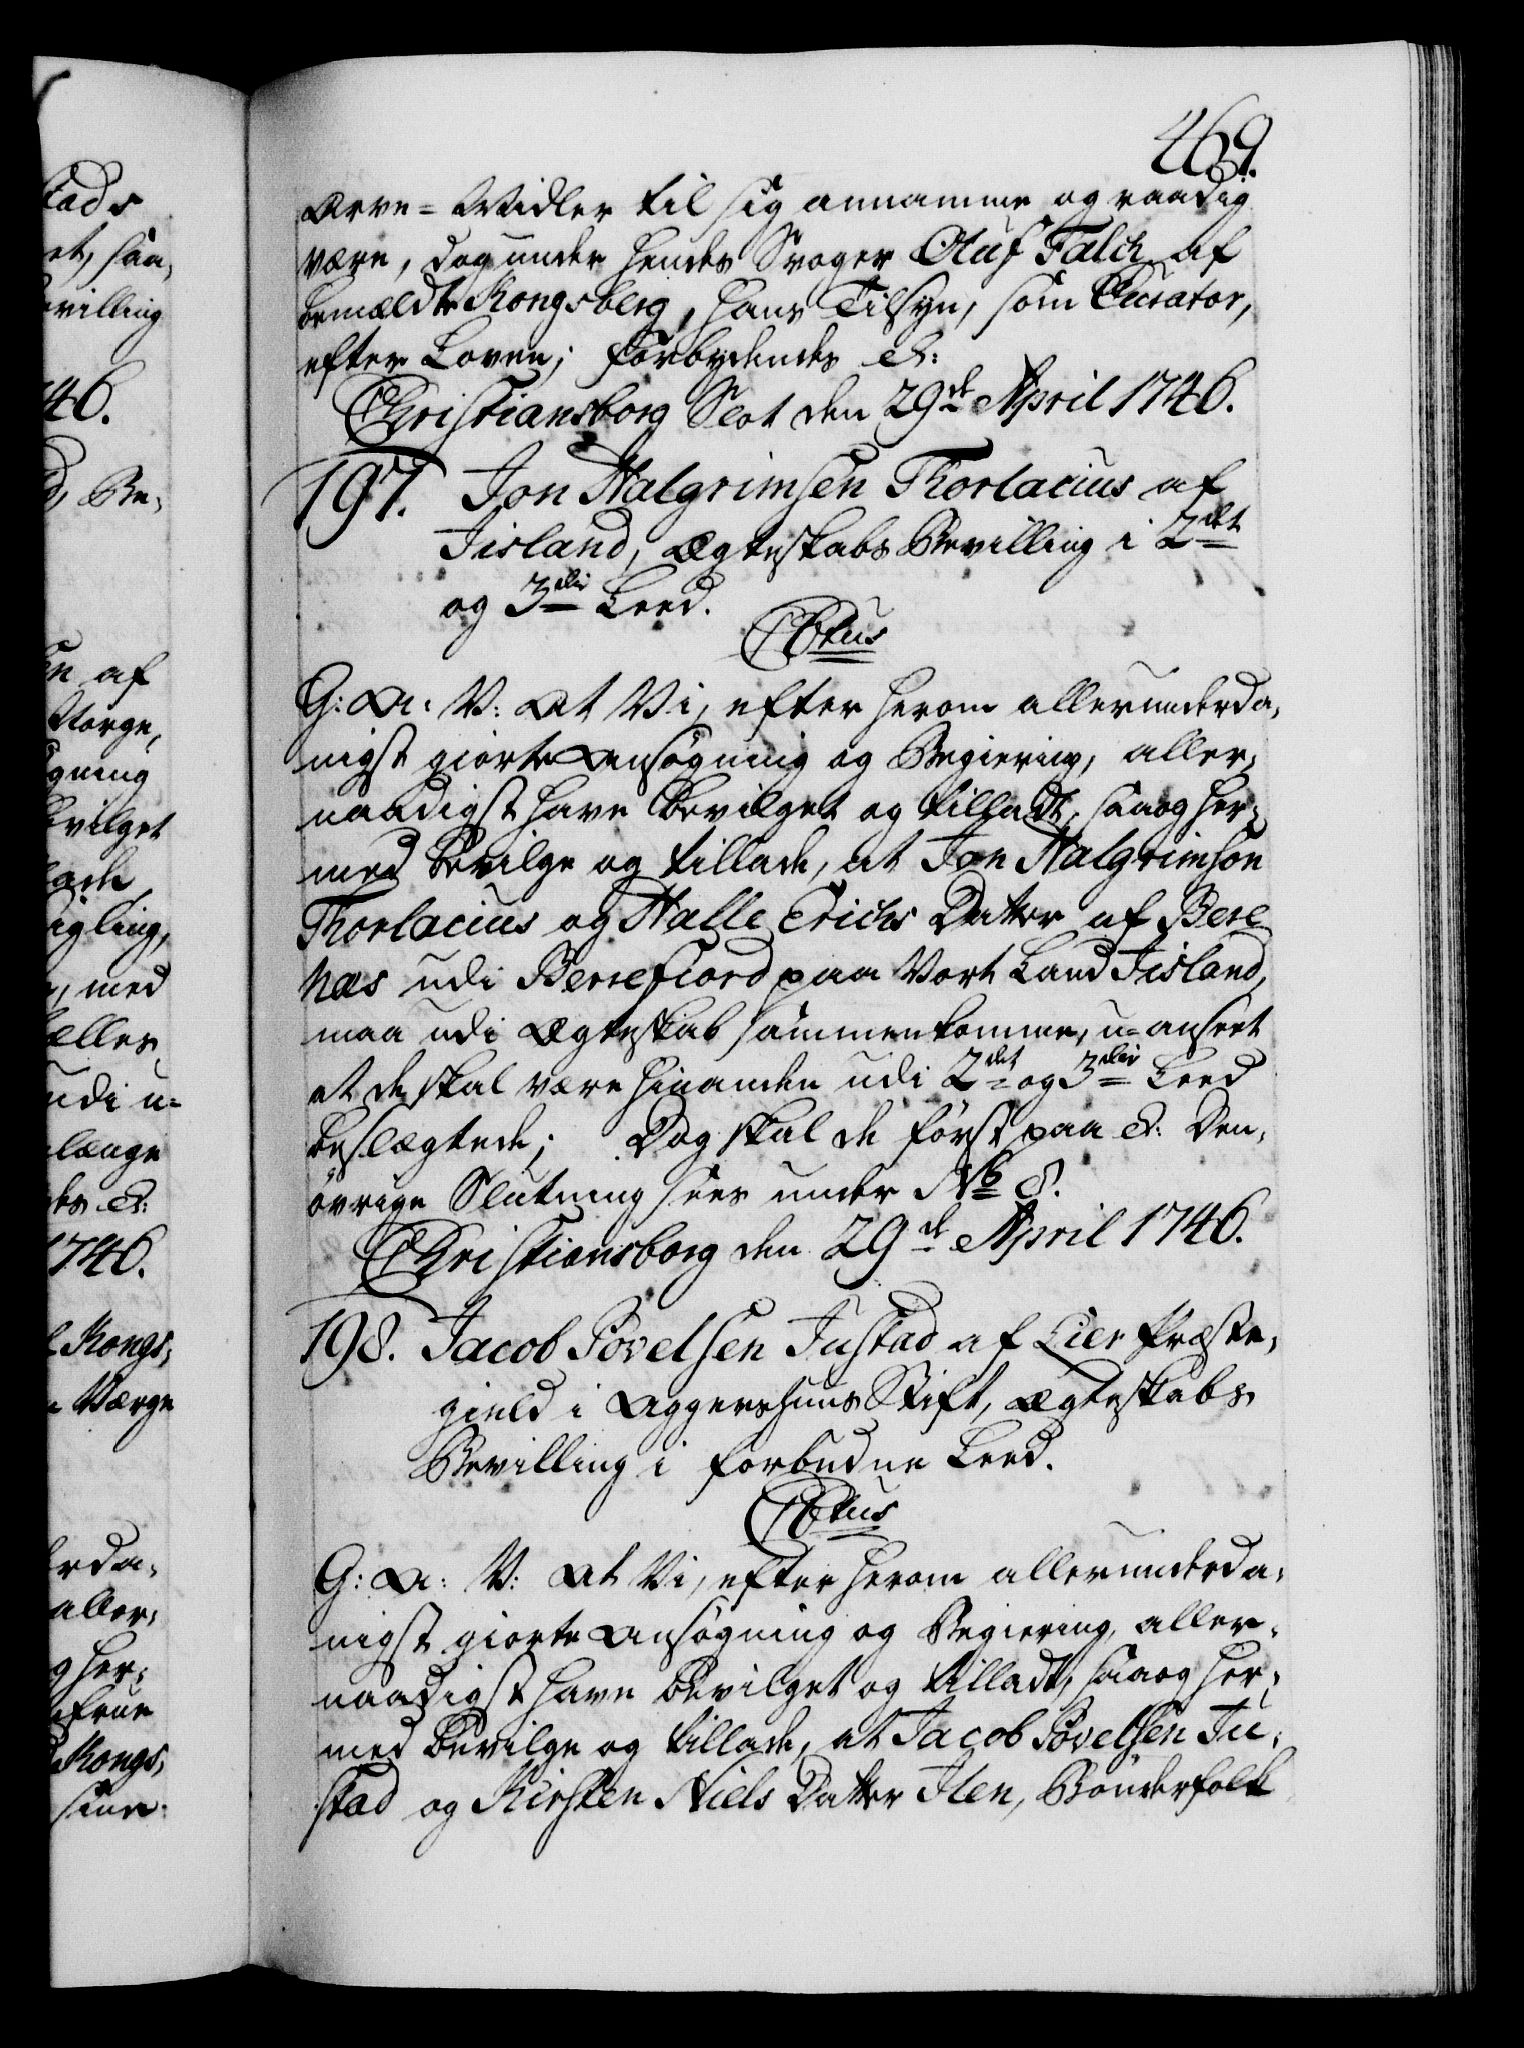 469.
Arve-Midler til sig annamme og raadig
være, dog under hendes Svoger Oluf Falch af
bemældte Kongsberg, hans Tilsyn, som Curator,
efter Loven; Forbydendes &:
Christiansborg Slot den 29de April 1746.
197. Jon Halgrimsen Thorlacius af
Jisland, Ægteskabs Bevilling i 2det
og 3die Leed.
C6tus
G: A: V: At Vi, efter herom allerunderda,
nigst giorte Ansøgning og Begiering, aller,
naadigst have bevilget og tilladt, saa og her,
med bevilge og tillade, at Jon Halgrimson
Thorlacius og Halle Erichs Datter af Bere
næs udi Berrefiord paa Vort Land Jisland,
maa udi Ægteskab sammenkomme, u-anseet
at de skal være hinanden udi 2det og 3die Leed
beslægtede; Dog skal de først paa &. Den,
øvrige Slutning sees under No 8.
Christiansborg den 29de April 1746.
198. Jacob Povelsen Justad af Lier Præste,
gield i Aggershuus Stift, Ægteskabs
Bevilling i forbudne Leed.
C6tus
G: A: V: At Vi, efter herom allerunderda,
nigst giorte Ansøgning og Begiering, aller,
naadigst have bevilget og tilladt, saa og her,
med bevilge og tillade, at Jacob Povelsen Ju,
stad og Kirsten Niels Datter Ilen, Bønderfolk